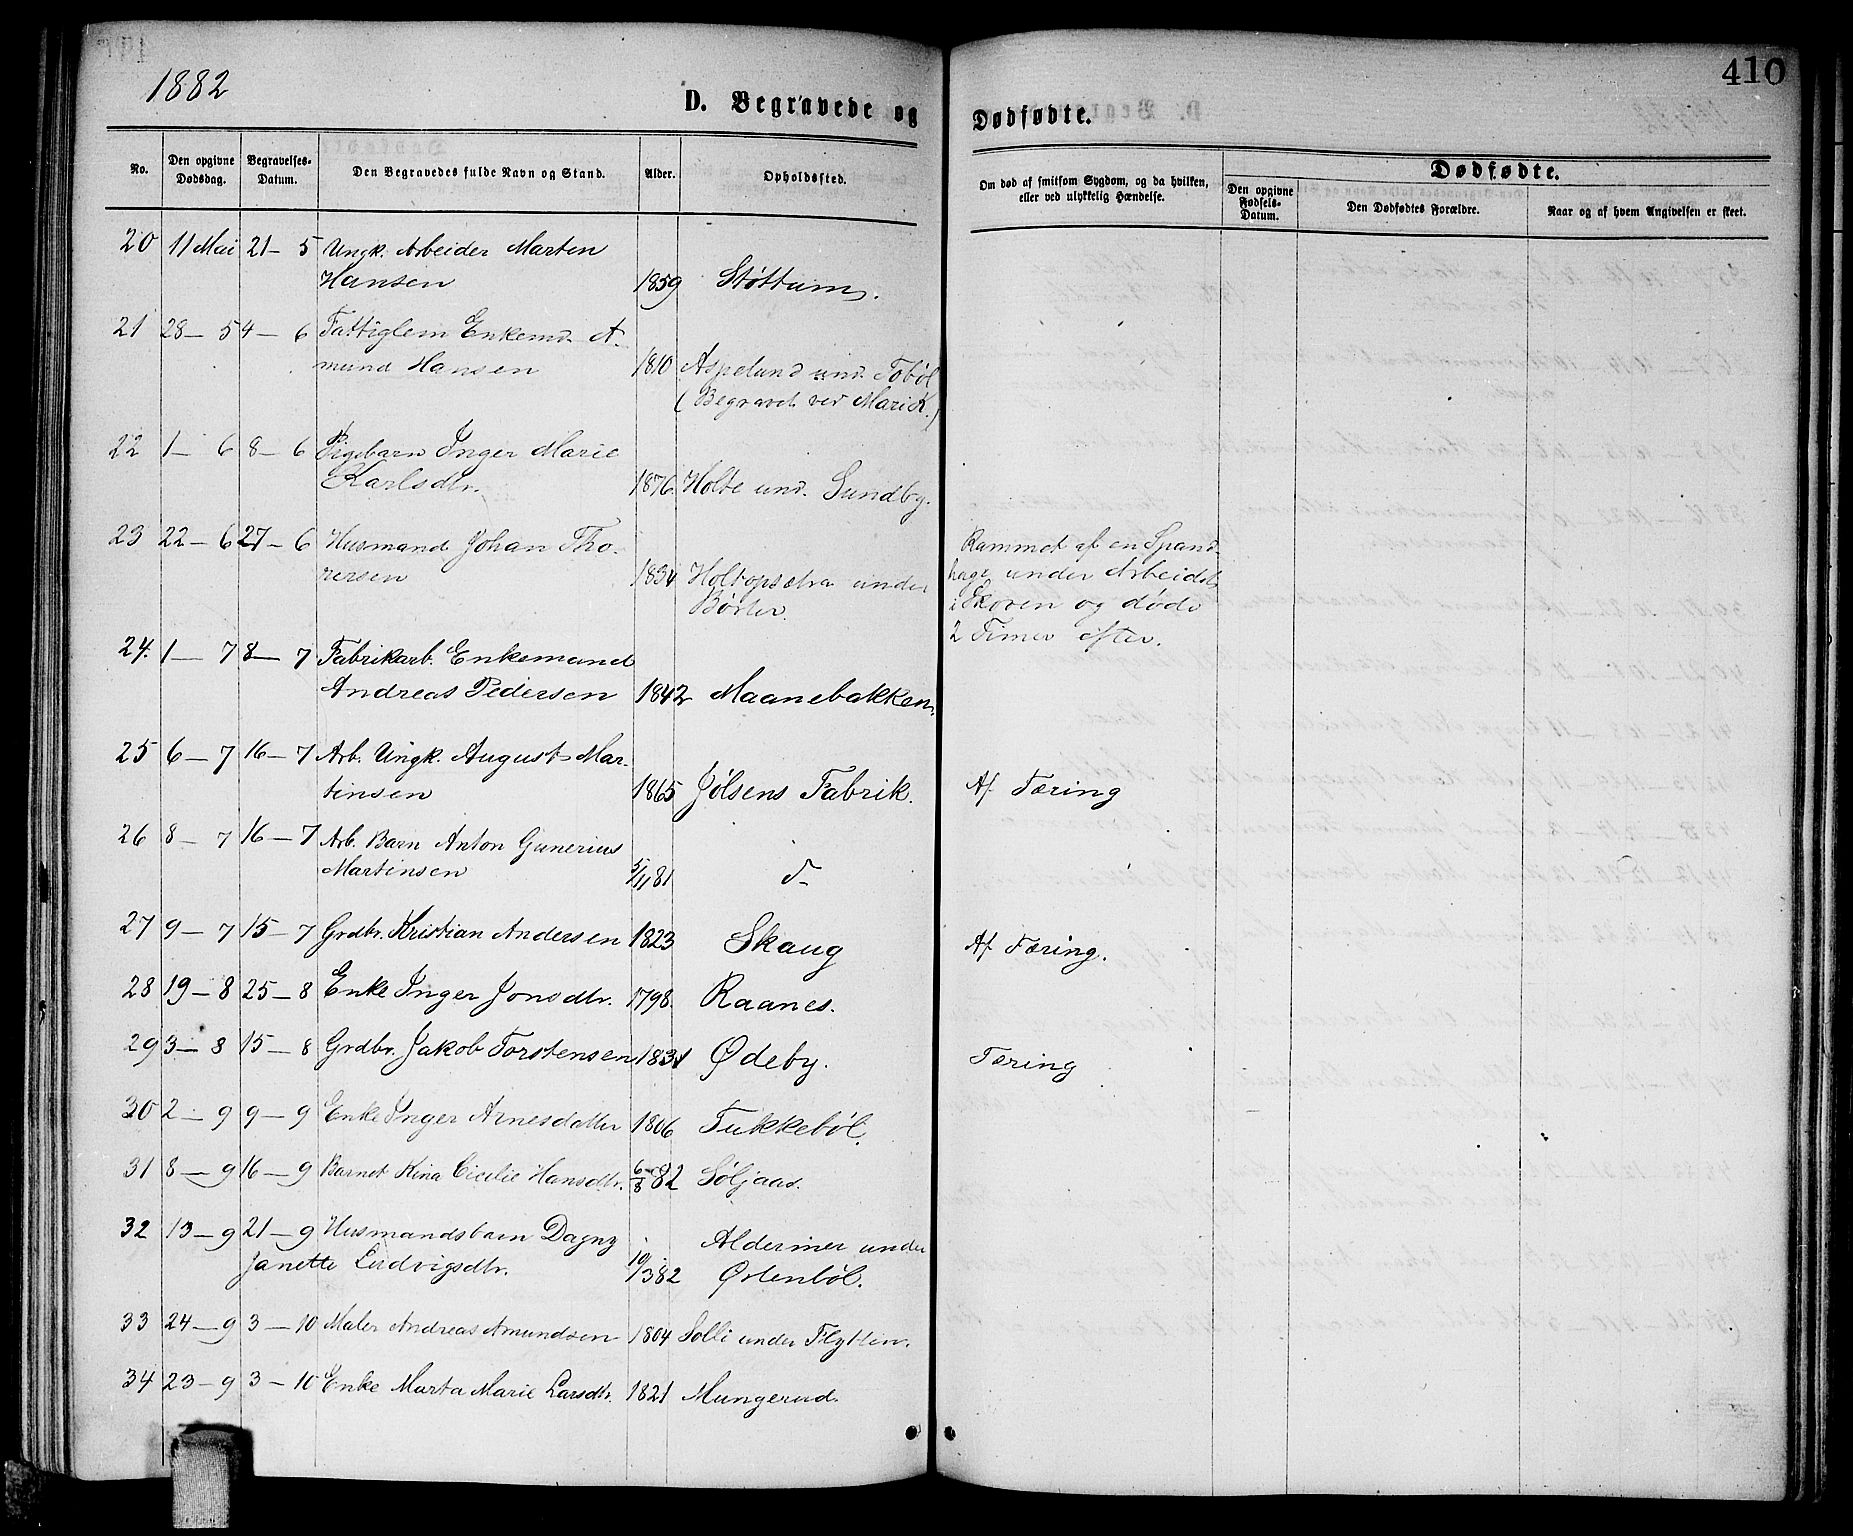 1882
410
D. Begravede og Dødfødte.
No.
Den opgivne Dødsdag.
Begravelses-Datum.
Den Begravedes fulde Navn og Stand.
Alder.
Opholdssted.
Om død af smitsom Sygdom, og da hvilken, eller ved ulykkelig Hændelse.
Dødfødte.
Den opgivne Fødsels-Datum.
Den Dødfødtes Forældre.
Naar og af hvem Angivelsen er skeet.
20 11 Mai 21 - 5 Ungk. Arbeider Marten
Hansen 1859 Støttum.
21 28 - 5 4 - 6 Fattiglem Enkemd. A-
mund Hansen 1810 Aspelund und. Tobøl
(Begravet ved Mari K.)
22 1 - 6 8 - 6 Pigebarn Inger Marie
Karlsdtr. 1876 Holte und. Sundby.
23 22 - 6 27 - 6 Husmand Johan Tho- Rammet af en Spand-
resen 1834 Holtopsætra under hage under Arbeidet
Børter. i Skoven og døde
2 Timer efter.
24. 1 - 7 8 - 7 Fabrikarb. Enkemand
Andreas Pedersen 1842 Maanebakken.
25 6 - 7 16 - 7 Arb. Ungk. August Mar-
tinsen 1865 Jølsens Fabrik. Af Tæring
26 8 - 7 16 - 7 Arb. Barn Anton Gunerius
Martinsen 5/11 81 d-
27 9 - 7 15 - 7 Grdbr. Kristian Andersen 1823 Skaug Af Tæring.
28 19 - 8 25 - 8 Enke Inger Jonsdtr. 1798 Raanes.
29 3 - 8 15 - 8 Grdbr. Jakob Torstensen 1831 Ødeby. Tæring
30 2 - 9 9 - 9 Enke Inger Arnesdatter 1806 Tukkebøl.
31 8 - 9 16 - 9 Barnet Kina Cicilie Hansdtr. 6/8 82 Søljaas.
32 13 - 9 21 - 9 Husmandsbarn Dagny Aldermer under
Janette Ludvigsdtr. 10/3 82 Ørtenbøl.
33 24 - 9 3 - 10 Maler Andreas Amundsen 1804 Solli under Flytten.
34 23 - 9 3 - 10 Enke Marta Marie Larsdtr. 1821 Mungerud.